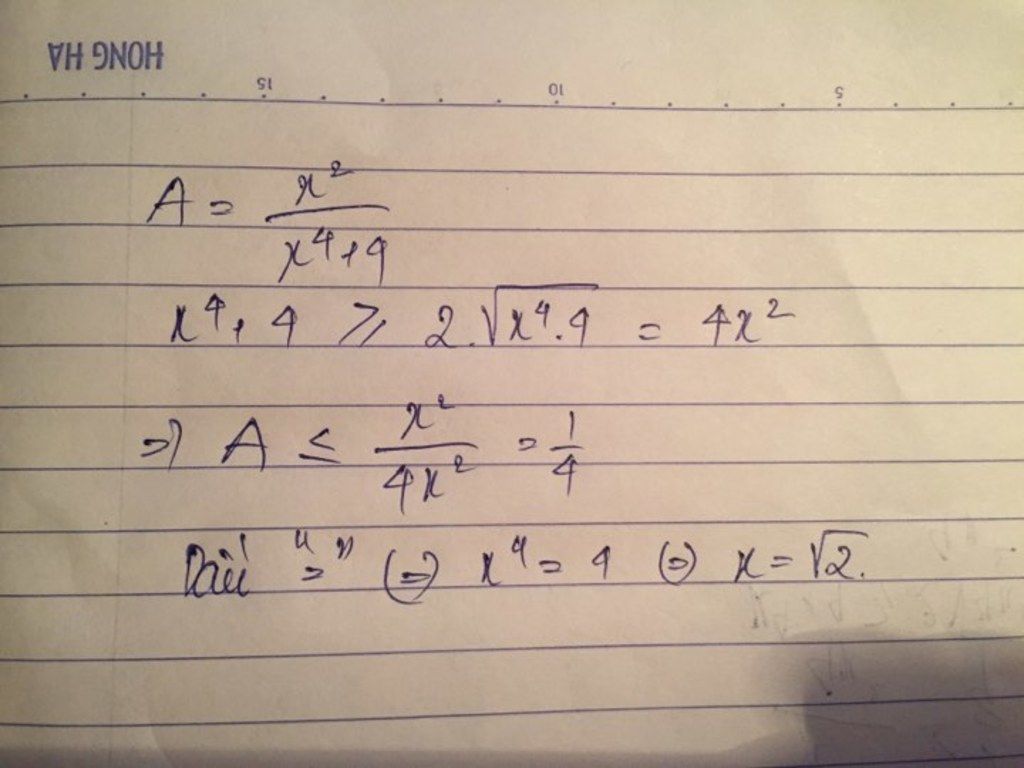 HONG HA
15 10 5
A = x²/(x⁴+4)
x⁴ + 4 ≥ 2.√(x⁴.4) = 4x²
=) A ≤ x²/(4x²) = 1/4
Dấu "=" (=) x⁴ = 4 (=) x = √2.